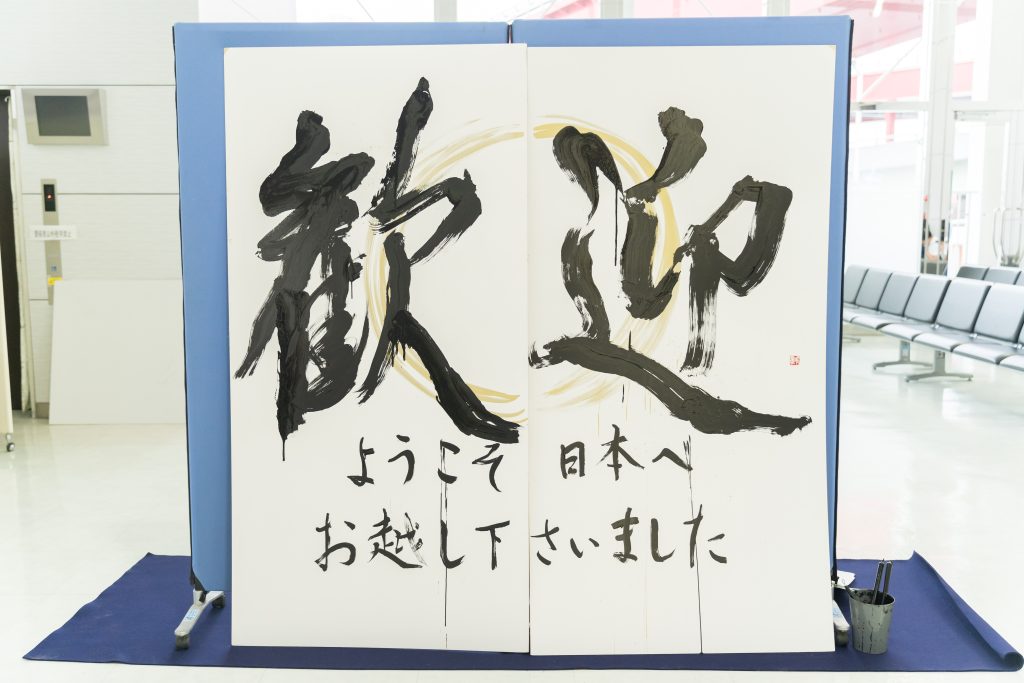 歓迎
ようこそ 日本へ
お越し下さいました